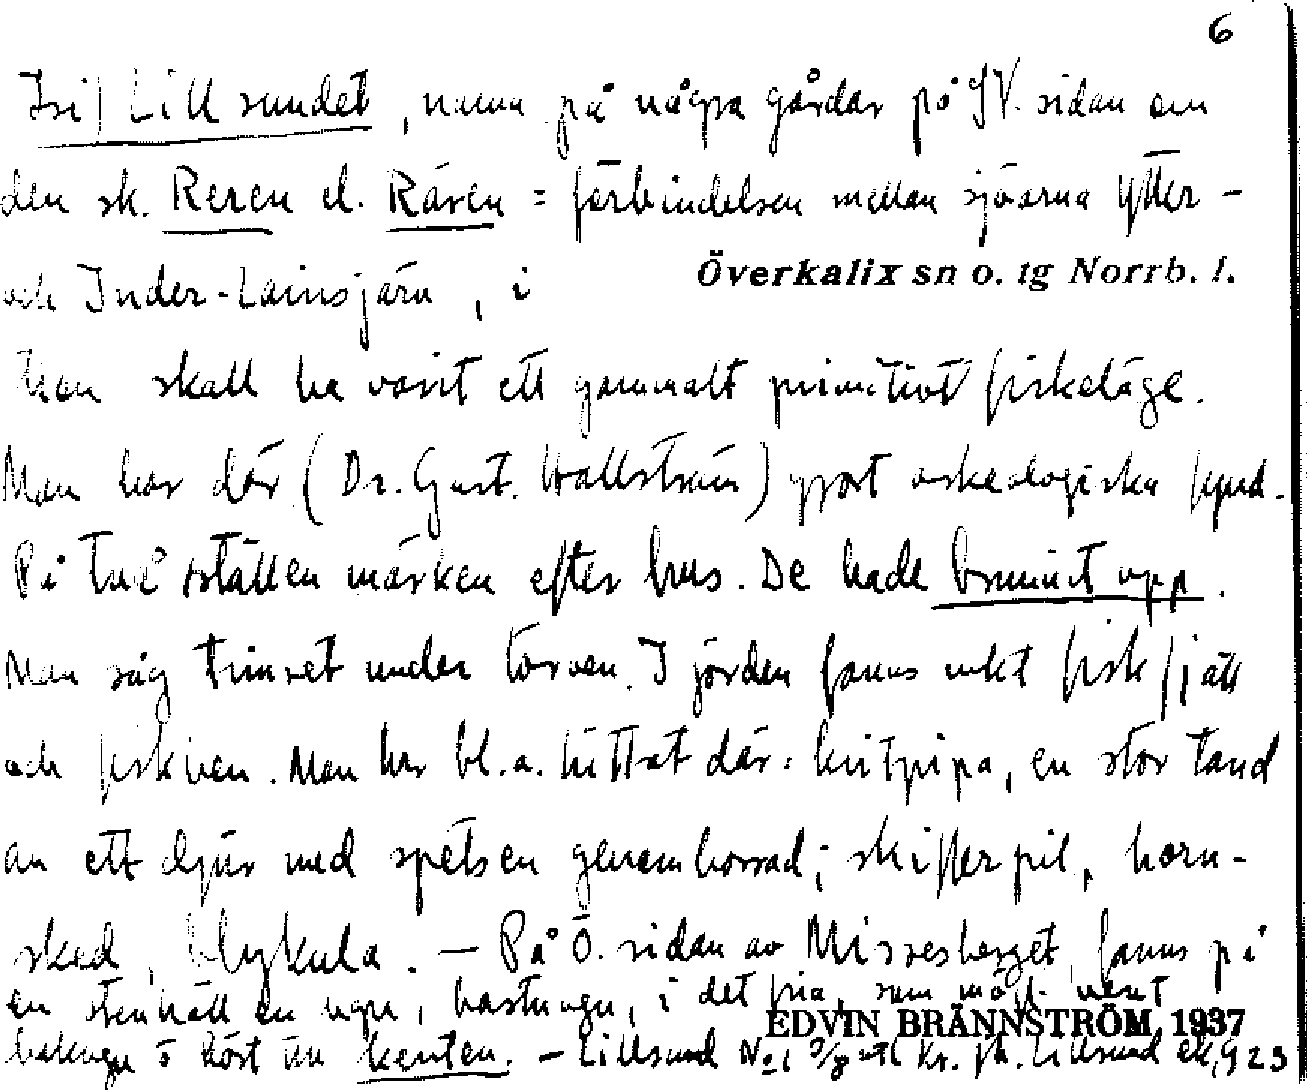 6
Lillsundet, namn på några gårdar på SV. sidan om
den sk. Reren el. Räven = förbindelsen mellan sjöarna Ytter-
och Inder-Lainsjärv, i Överkalix sn o. tg Norrb. l.
skall ha varit ett gammalt primitivt fiskeläge.
Man har där (Dr. Gust. Hallström) gjort arkeologiska fynd.
På två ställen märken efter hus. De hade brunnit upp.
Man såg timret under torven. I jorden fanns fisk fjäll
och fiskben. Man har bl.a. hittat där: kritpipa, en stor tand
av ett djur med spetsen genomborrad; skifferpil, horn-
sked, blykula. – På Ö. sidan av Missesberget fanns på
en stenhäll en ugn, i det fria, som
EDVIN BRÄNNSTRÖM, 1937
kenten. – Lillsund No 1 Lillsund 923